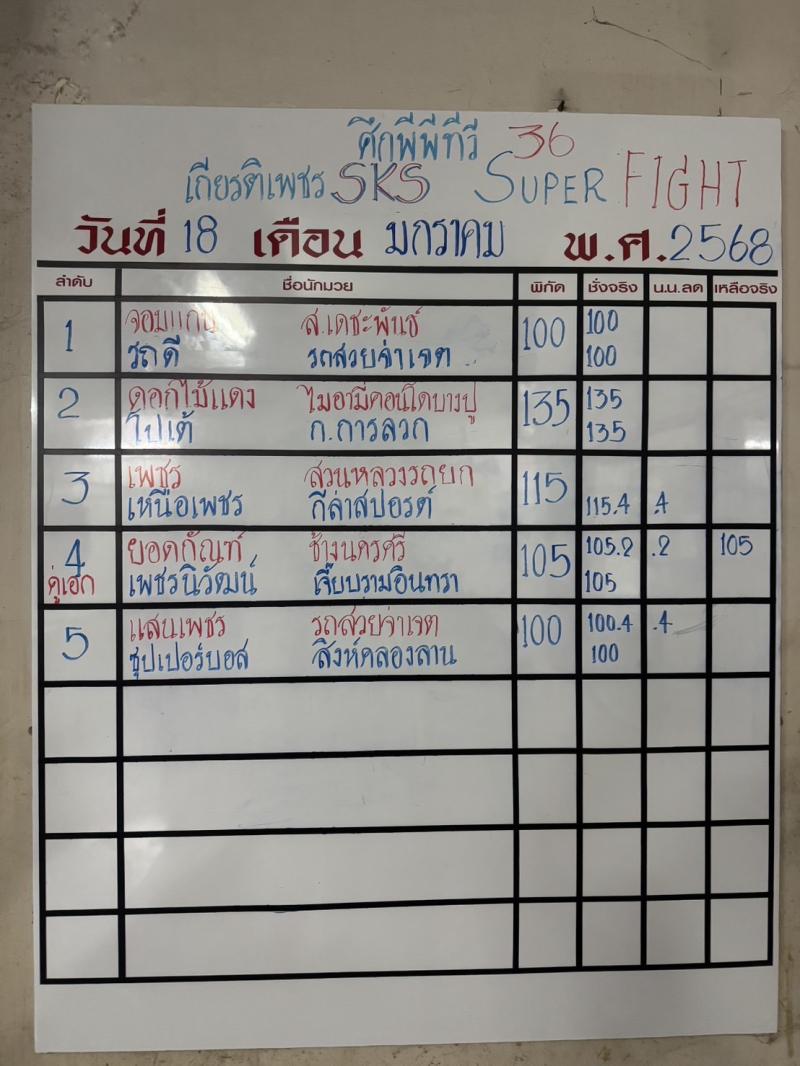 ศึกพีพีทีวี 36
เกียรติเพชร SKS SUPER FIGHT
วันที่ 18 เดือน มกราคม พ.ศ. 2568
ลำดับ ชื่อนักมวย พิกัด ชั่งจริง น.น.ลด เหลือจริง
1 จอมแก่น ส.เดชะพันธ์ 100 100
รถดี รถสวยจ่าเจต 100
2 ดอกไม้แดง ไมอามี่คอนโดบางปู 135 135
โปเต้ ก.การลวก 135
3 เพชร สวนหลวงรถยก 115
เหนือเพชร กีล่าสปอรต์ 115.4 .4
4 ยอดกัณฑ์ ช้างนครศรี 105 105.2 .2 105
คู่เอก เพชรนิวัฒน์ เจี๊ยบรามอินทรา 105
5 แสนเพชร รถสวยจ่าเจต 100 100.4 .4
ซุปเปอร์บอส สิงห์คลองลาน 100